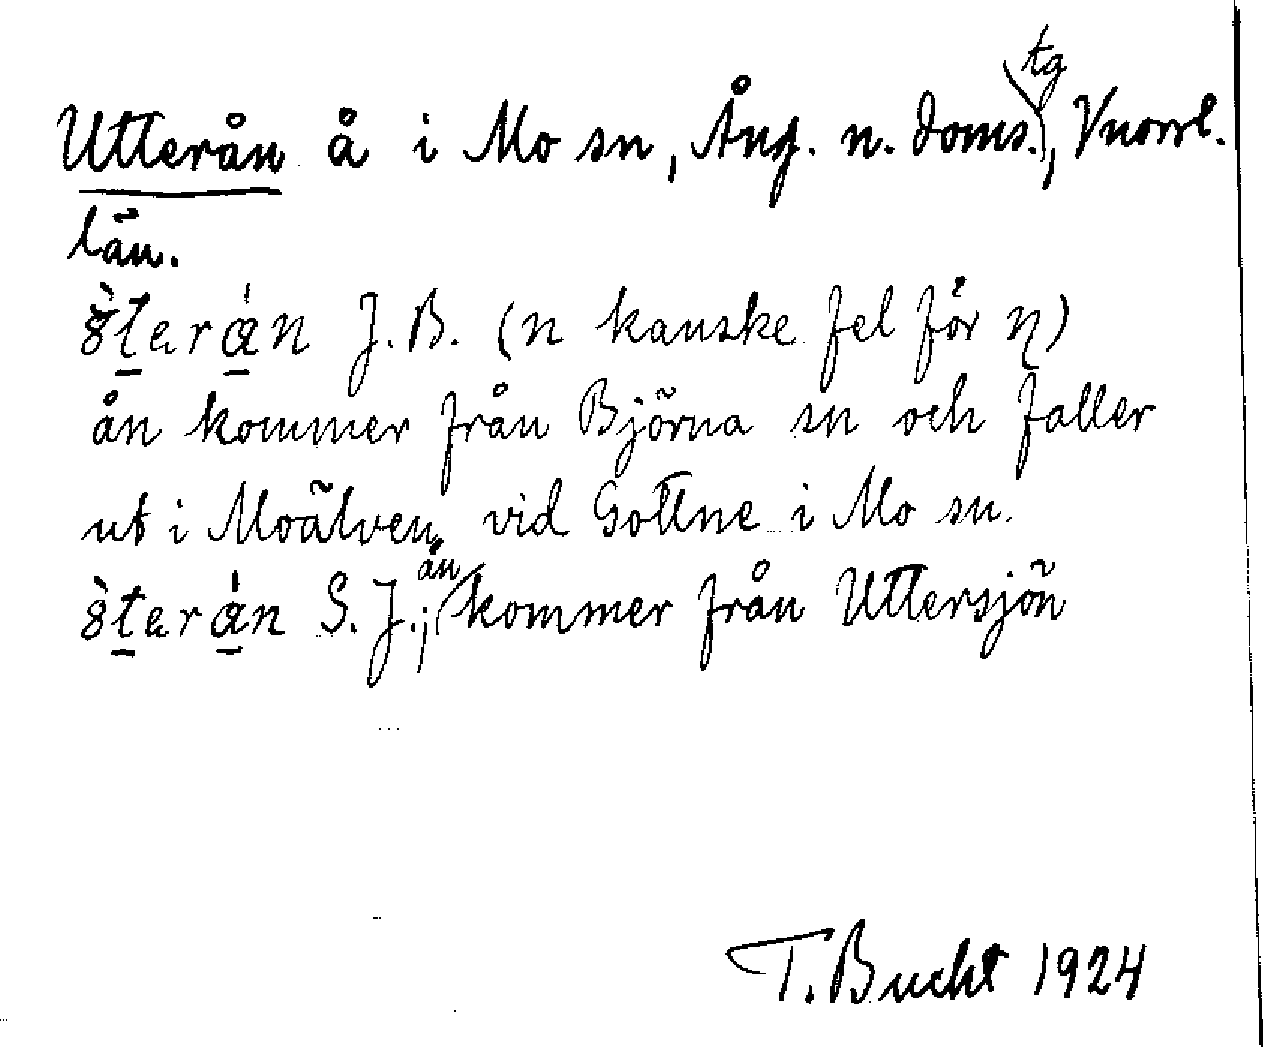 Utterån å i Mo sn, Ång. n. doms.tg, Vnorrl.
län.
J.B. (n kanske fel för ɳ)
ån kommer från Björna sn och faller
ut i Moälven vid Gottne i Mo sn.
S.J.; ån kommer från Uttersjön
T. Bucht 1924